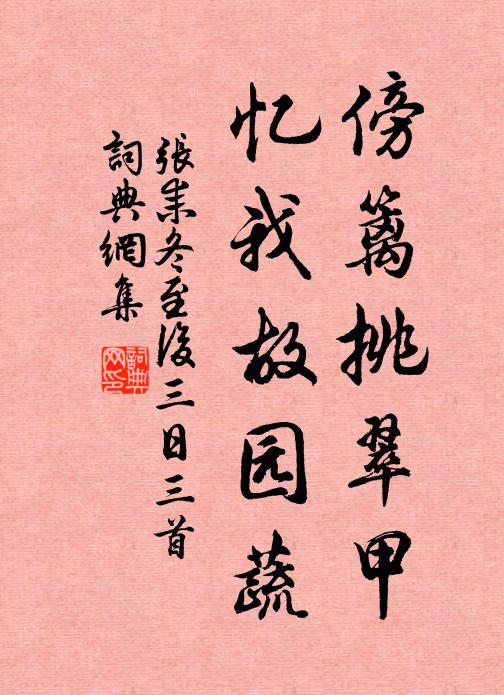 傍篱挑翠甲
忆我故园蔬
張耒冬至後三日三首
詞典網集
詞典
网印